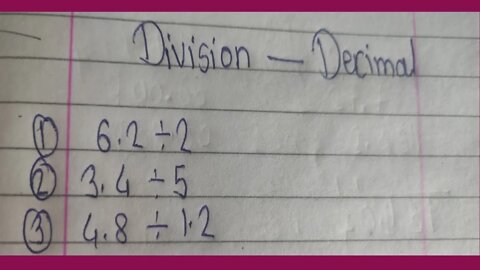 Division — Decimal
① 6.2 ÷ 2
② 3.4 ÷ 5
③ 4.8 ÷ 1.2